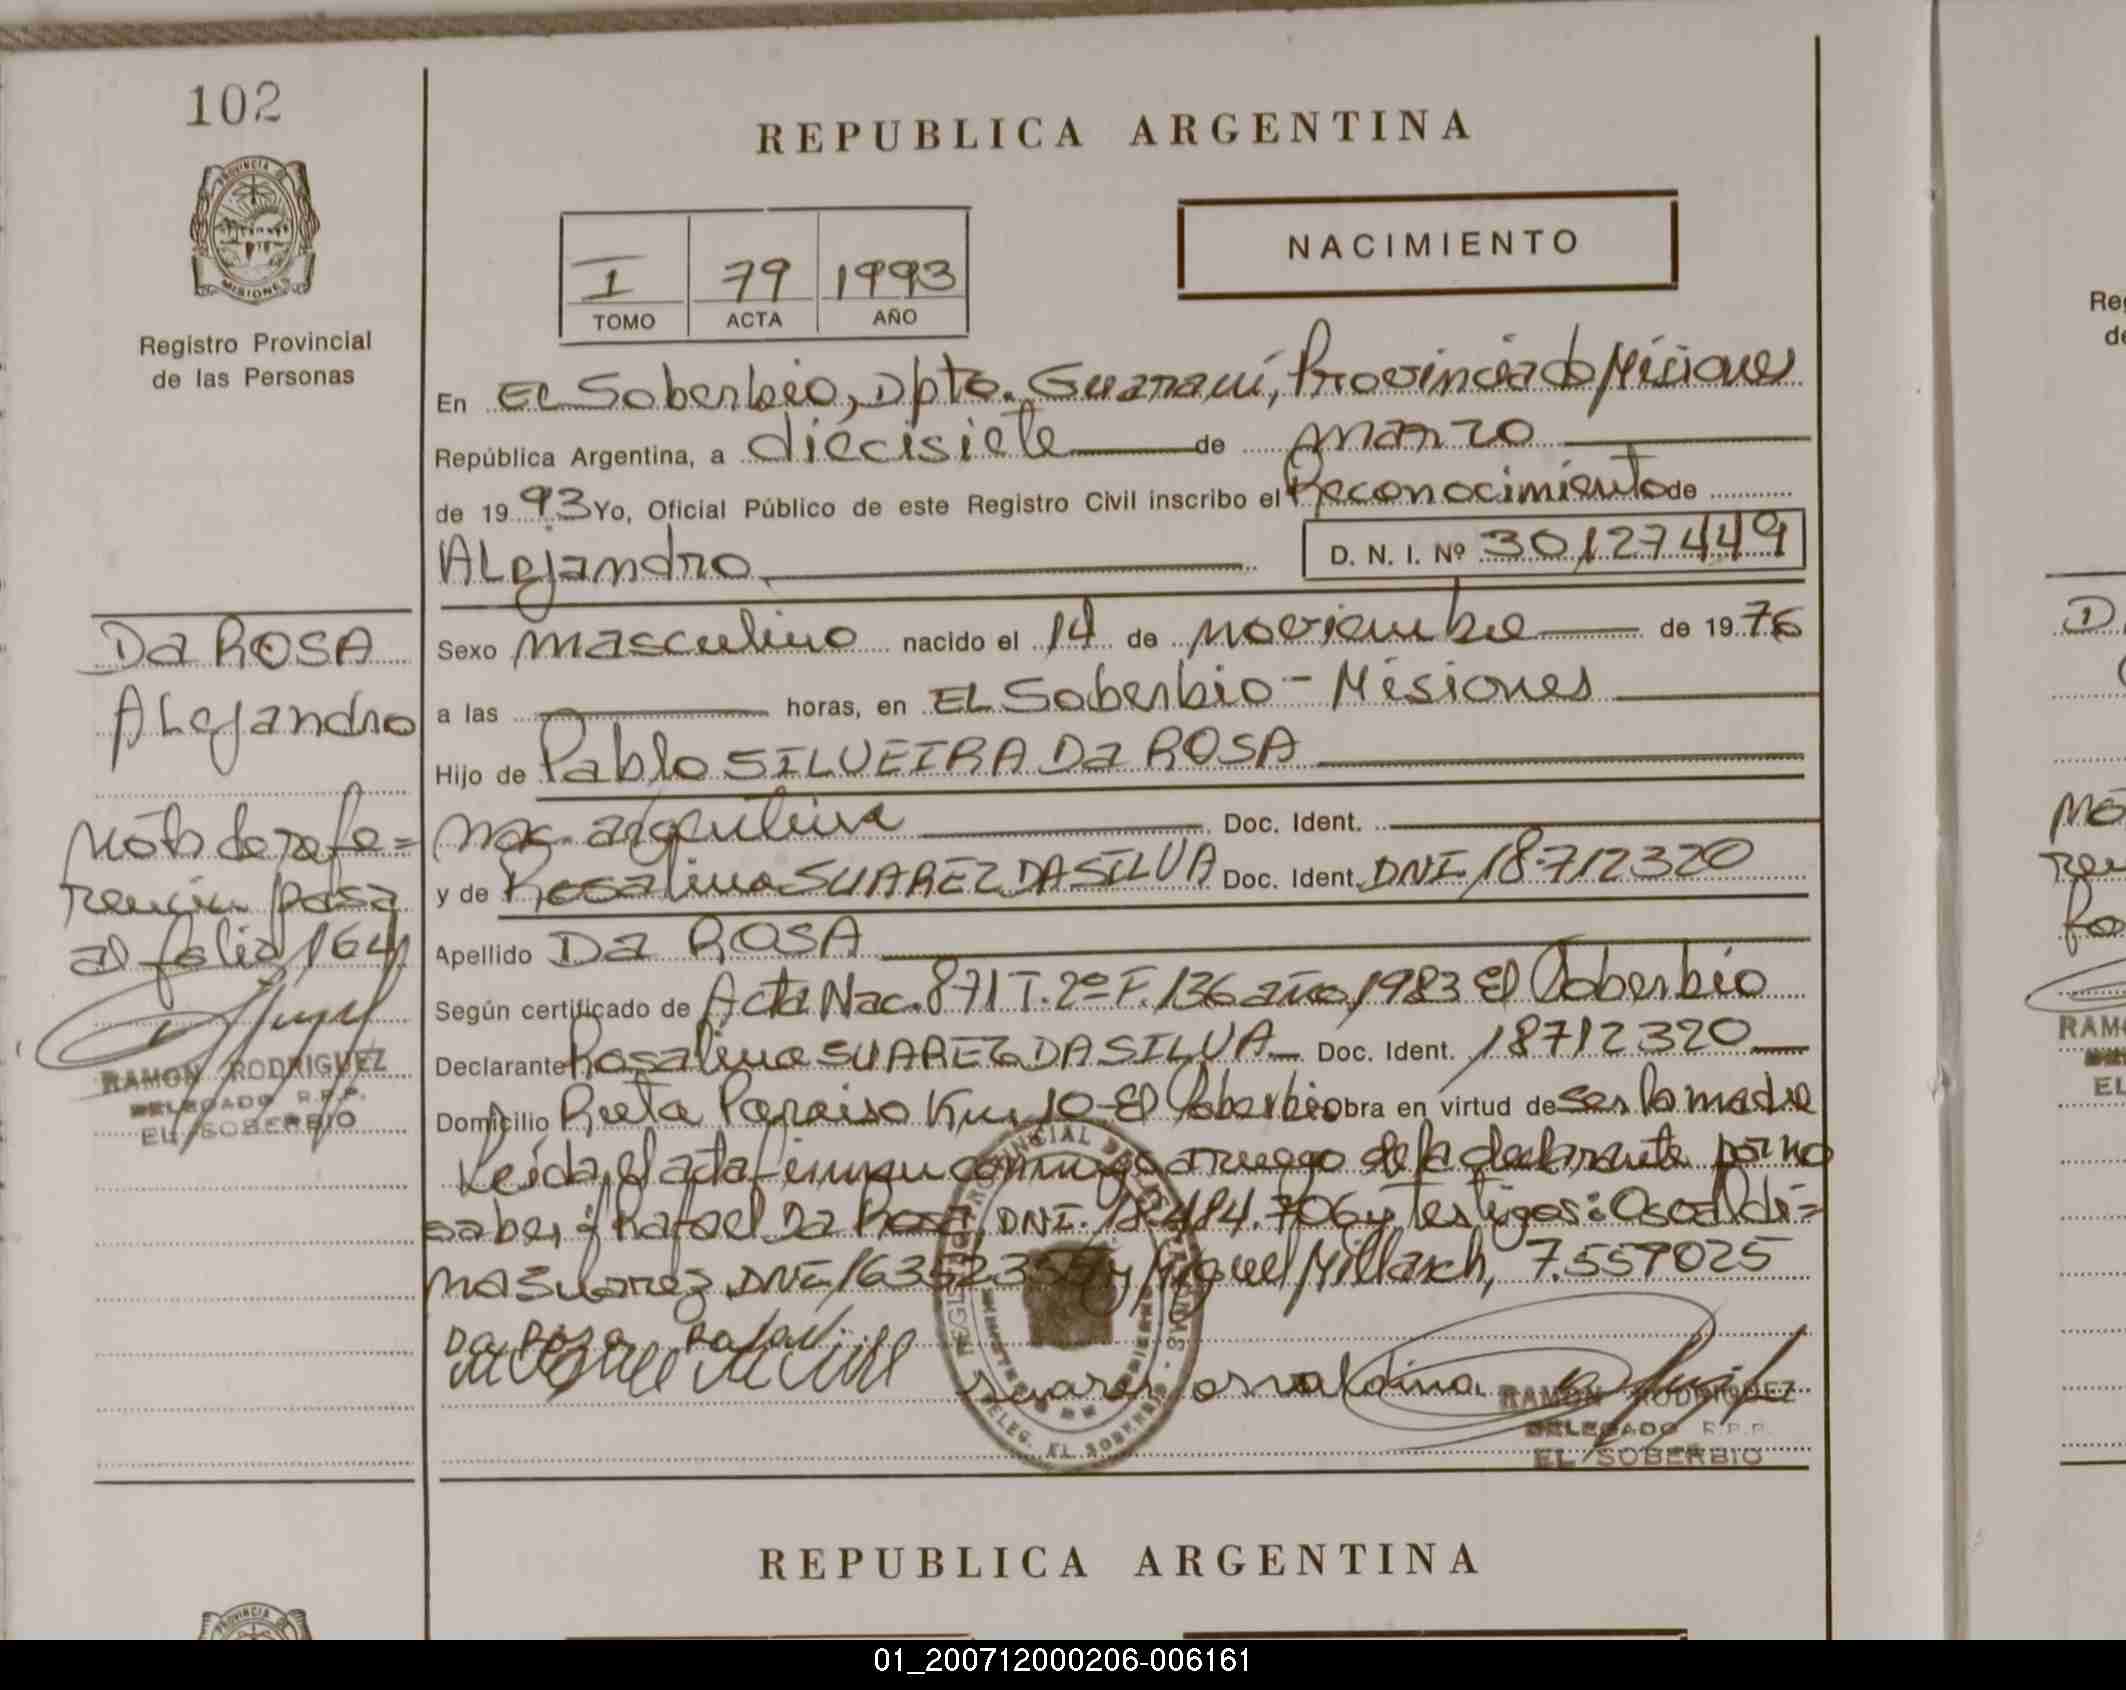 102
PROVINCIA DE
MISIONES
Registro Provincial
de las Personas
Da ROSA
Alejandro
Nota de refe=
rencia pasa
al folio 164
RAMON RODRIGUEZ
DELEGADO R.P.P.
EL SOBERBIO
REPUBLICA ARGENTINA
NACIMIENTO
I 79 1993
TOMO ACTA AÑO
En El Soberbio, Dpto. Guaraní, Provincia de Misiones
República Argentina, a diecisiete de marzo
de 1993 Yo, Oficial Público de este Registro Civil inscribo el Reconocimiento de
Alejandro D. N. I. Nº 30127449
Sexo masculino nacido el 14 de noviembre de 1976
a las horas, en El Soberbio - Misiones
Hijo de Pablo SILVEIRA Da ROSA
nac. argentina Doc. Ident.
y de Rosalina SUAREZ DA SILVA Doc. Ident. DNI 18.712320
Apellido Da ROSA
Según certificado de Acta Nac. 871 T. 2º F. 136 año 1983 El Soberbio
Declarante Rosalina SUAREZ DA SILVA Doc. Ident. 18712320
Domicilio Ruta Paraiso Km 10 - El Soberbio obra en virtud de ser la madre
Leída el acta firman conmigo a ruego de la declarante por no
saber: Rafael Da Rosa, DNI. y testigos: Osvaldi=
na Suarez DNI y Miguel Millarch, 7.559025
Da Rosa Rafael
Suarez osvaldina
RAMON RODRIGUEZ
DELEGADO R.P.P.
EL SOBERBIO
REPUBLICA ARGENTINA
PROVINCIA DE
01_200712000206-006161